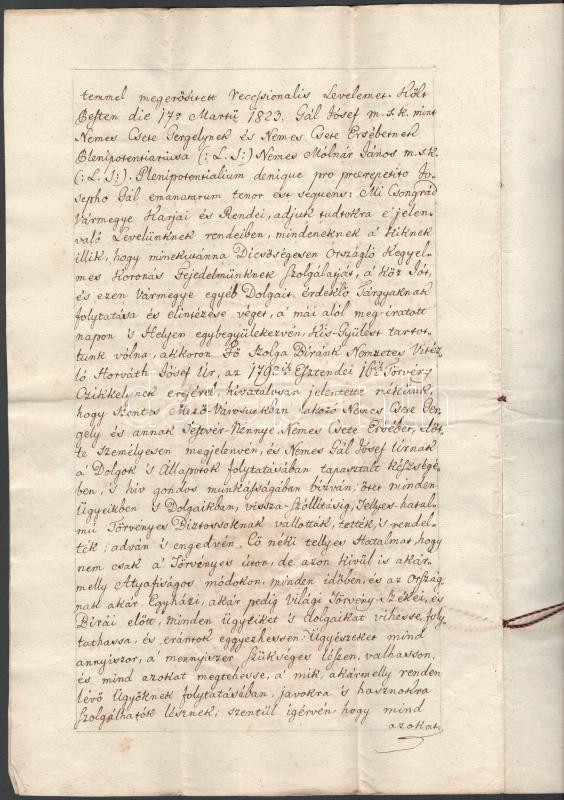 temmel megerősitett Recessionalis Levelemet. Költ
Pesten die 17ª Martii 1823. Gál Jósef m. s. k. mint
Nemes Csete Gergelynek és Nemes Csete Ersébetnek
Plenipotentiariusa (: L. S:) Nemes Mólnár János m. s. k.
(: L. S:). Plenipotentialium denique pro præ repetito Jo-
sepho Gál emanatarum tenor est sequens: Mi Csongrád
Vármegye Karjai és Rendei, adjuk tudtokra é jelen-
való Levelünknek rendeiben, mindeneknek á kiknek
illik, hogy minekutánna Dicsőségesen Országló Kegyel-
mes Koronás Fejedelmünknek szolgálatját, á köz Jót,
és ezen Vármegye egyéb Dolgait érdeklő Tárgyaknak
folytatása és elintézése véget, a mái alól meg-iratott
napon 's Helyen egybegyülekezvén, Kis-Gyülést tartot-
tunk vólna, akkoron Fő Szolga Biránk Nemzetes Vitéz-
ló Horváth Jósef Ur, az 179 Esztendei 16 Törvény
Czikkelynek erejével, hivatalosan jelentette nékünk,
hogy Szentes Mező-Varosunkban lakozó Nemes Csete Ger-
gely és annak Testvér-Nénnye Nemes Csete Ersébet, előt-
te személyesen megjelenvén, és Nemes Gál Jósef Úrnak
á Dolgok 's Állapotok folytatásában tapasztalt készségé-
ben, 's hiv gondos munkásságában bizván; őtet minden
ügyeikben 's Dolgaikban, vissza-szóllitásig, Tellyes-hatal-
mú Törvényes Biztossoknak vallották, tették, 's rendel-
ték; adván 's engedvén Eő néki tellyes Hatalmat, hogy
nem csak á Törvényes úton, de azon kivül is akár-
melly Atyafiságos módokon, minden időben, és az Ország-
nak akár Egyházi, akár pedig Világi Törvény-Székei, és
Birái előtt, minden ügyeiket 's dolgaikat vihesse, foly-
tathassa, és erántok eggyezhessen: Ügyészeket mind
annyiszor, á mennyiszer szükséges lészen, valhasson,
és mind azokat megtehesse, á mik, akármelly renden
lévő ügyöknek folytatásában, javokra 's hasznokra
szolgálhatók lésznek; szentül igérvén, hogy mind
azokat